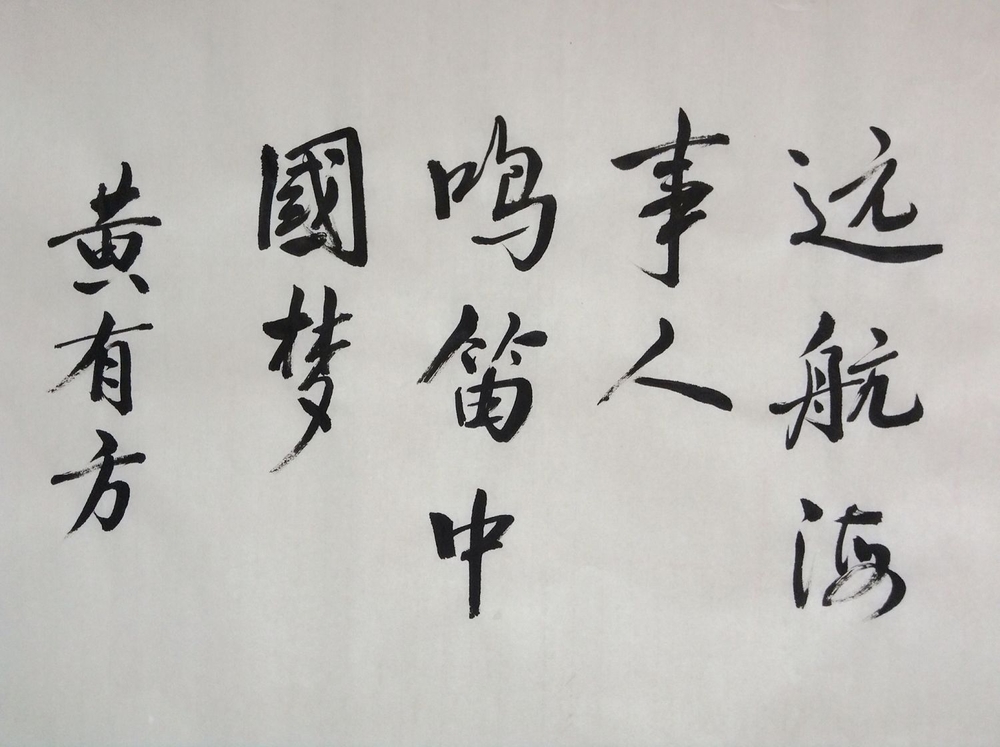 远航海
事人
鸣笛中
國梦
黄有方